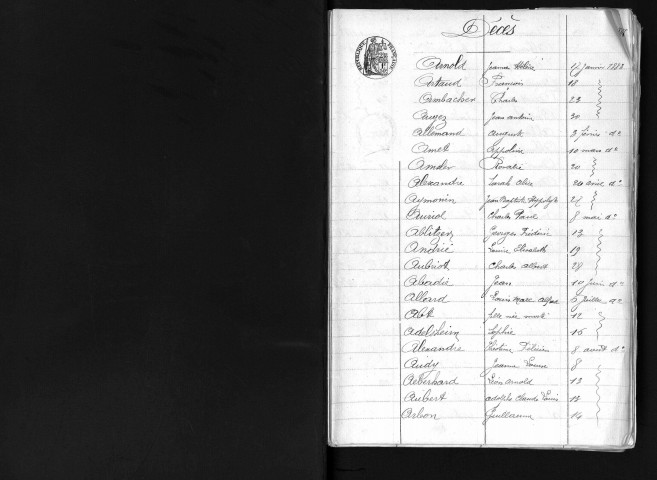 Décès
Arnold Jeanne Hélène 17 janvr 1883
Artaud François 18
Ambacher Charles 23
Augez Jean antoine 30
Allemand auguste 3 févrer do
Amet 10 mars do
Amder Rosalie 20
Alexandre Sarah Alice 20 avril do
Aymonin Jean Baptiste Hippolyte 24
Auriol Charles 8 mai do
Ablitzer Georges Frédéric 13
André Louise Elisabeth 19
Aubriot Charles albert 28
Abadie Jean 10 juin do
Allard Louis Marc juillet do
Abt née morte 12
Adelsheim Sophie 16
Alexandre 8 août do
Audy Jeanne Louise 8
Aeberhard Léon Arnold 13
Aubert adolphe Claude Louis 13
Arbon Guillaume 14